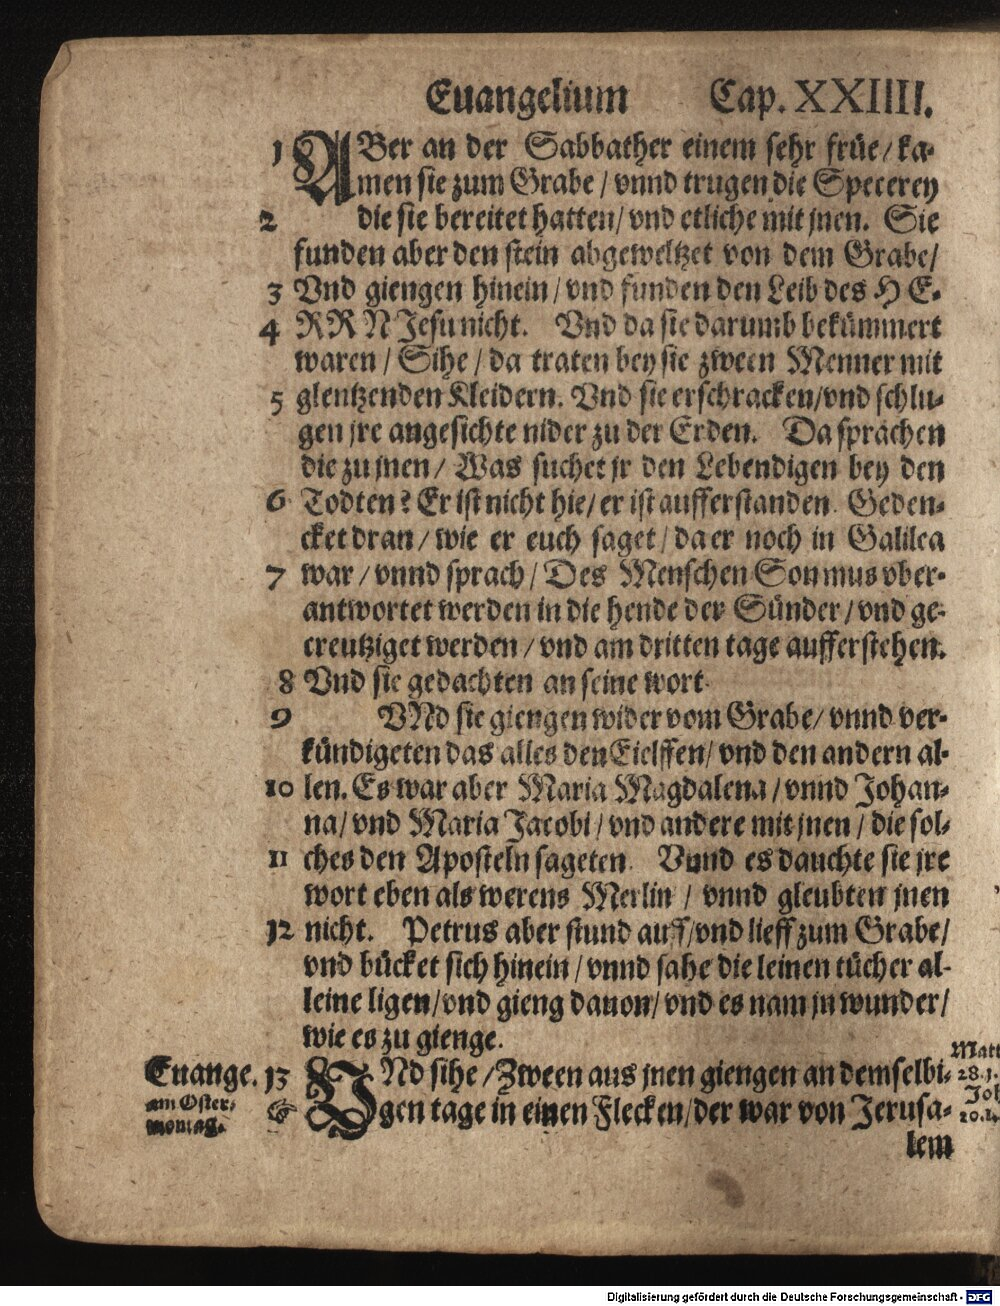 Euangelium Cap. XXIIII.
1 ABer an der Sabbather einem sehr früe/ ka-
men sie zum Grabe / vnnd trugen die Specerey
2 die sie bereitet hatten/ vnd etliche mit jnen. Sie
funden aber den stein abgeweltzet von dem Grabe/
3 Vnd giengen hinein / vnd funden den Leib des HE-
4 RRN Jesu nicht. Vnd da sie darumb bekümmert
waren / Sihe / da traten bey sie zween Menner mit
5 glentzenden Kleidern. Vnd sie erschracken/vnd schlu-
gen jre angesichte nider zu der Erden. Da sprachen
die zu jnen / Was suchet jr den Lebendigen bey den
6 Todten? Er ist nicht hie/ er ist aufferstanden. Geden-
cket dran / wie er euch saget / da er noch in Galilea
7 war / vnnd sprach / Des Menschen Son mus vber-
antwortet werden in die hende der Sünder / vnd ge-
creutziget werden / vnd am dritten tage aufferstehen.
8 Vnd sie gedachten an seine wort.
9 VNd sie giengen wider vom Grabe/ vnnd ver-
kündigeten das alles den Eielffen/ vnd den andern al-
10 len. Es war aber Maria Magdalena / vnnd Johan-
na/ vnd Maria Jacobi / vnd andere mit jnen / die sol-
11 ches den Aposteln sageten. Vund es dauchte sie jre
wort eben als werens Merlin / vnnd gleubten jnen
12 nicht. Petrus aber stund auff/vnd lieff zum Grabe/
vnd bücket sich hinein / vnnd sahe die leinen tücher al-
leine ligen/vnd gieng dauon/ vnd es nam jn wunder/
wie es zu gienge.
Matt
Euange. 13 VNd sihe / Zween aus jnen giengen an demselbi- 28.1.
am Oster- ☞ gen tage in einen Flecken/der war von Jerusa- Joh
montag. 20.
lem
Digitalisierung gefördert durch die Deutsche Forschungsgemeinschaft - DFG